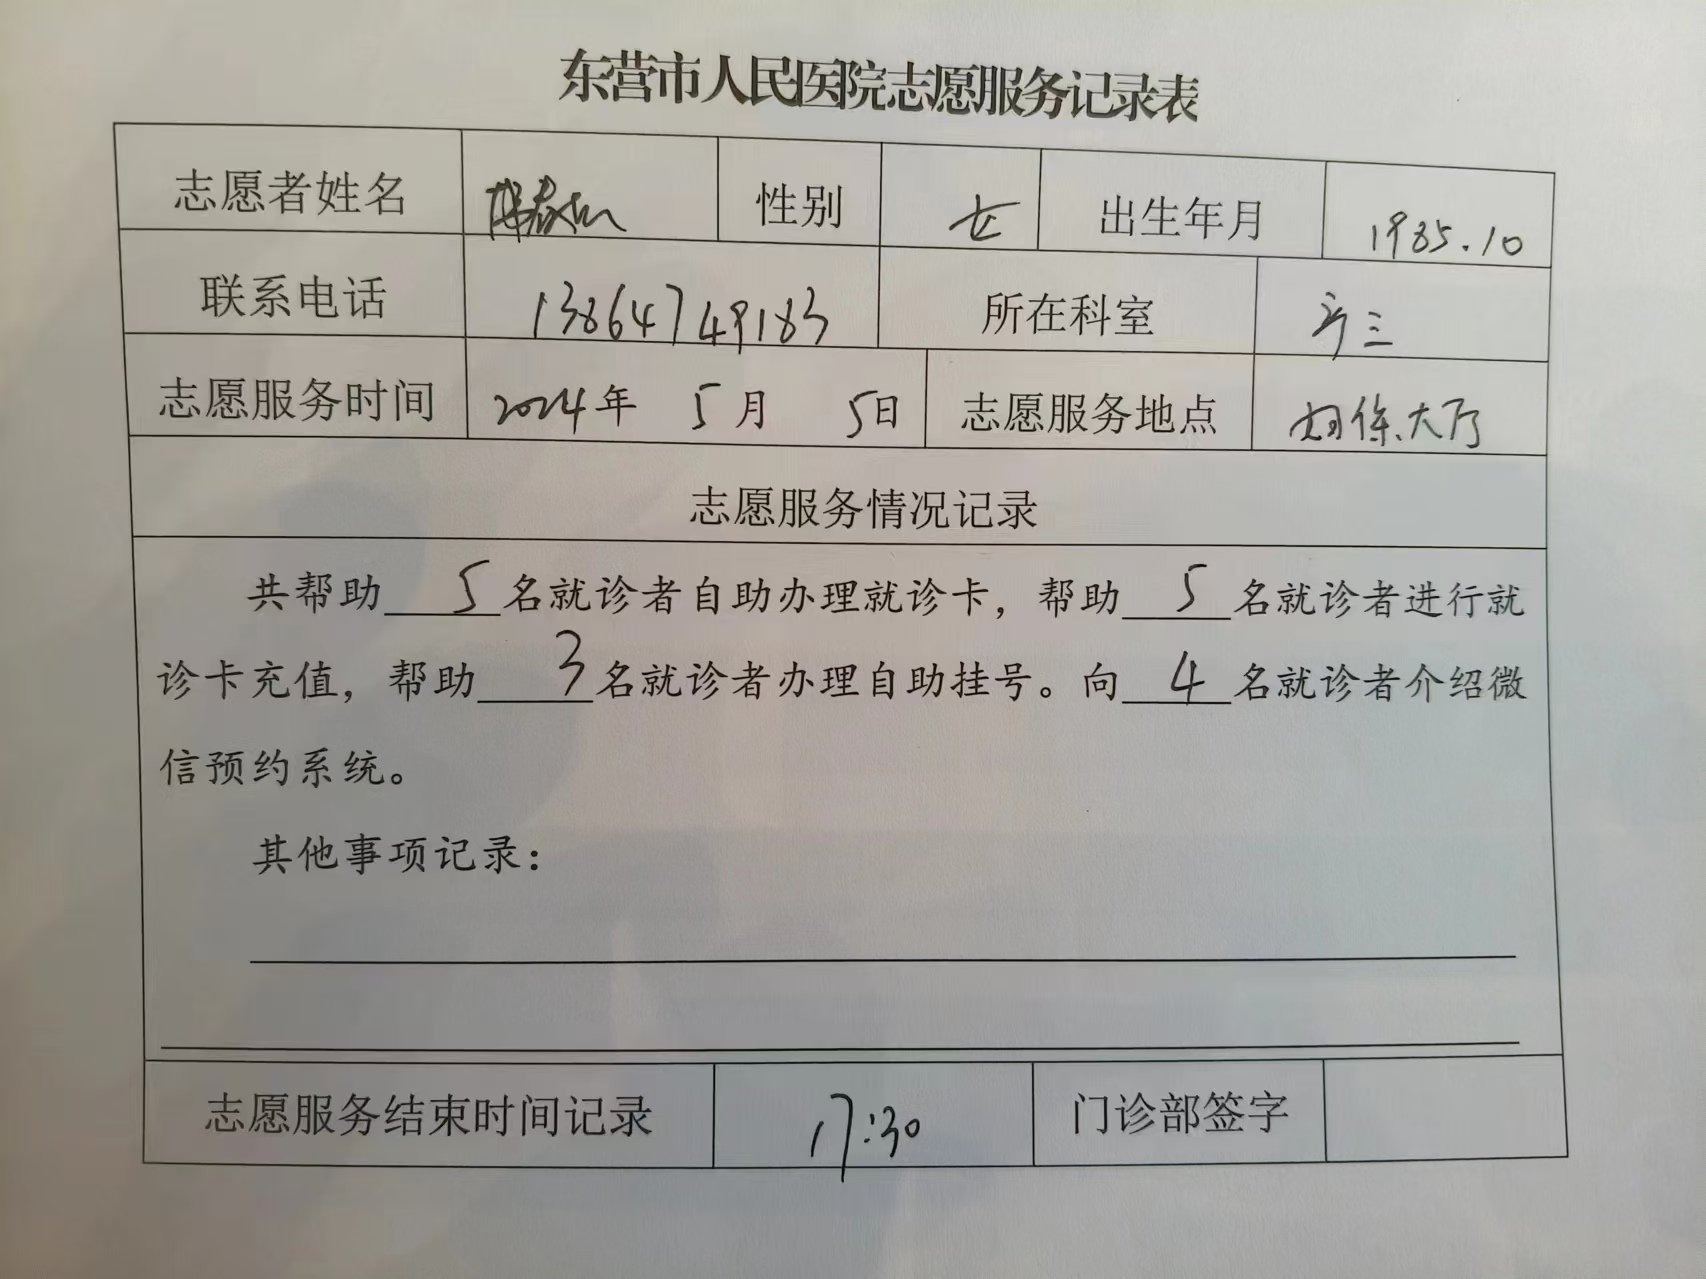 东营市人民医院志愿服务记录表
志愿者姓名 性别 女 出生年月 1985.10
联系电话 13864749183 所在科室 三
志愿服务时间 2024年 5月 5日 志愿服务地点 妇保大厅
志愿服务情况记录
共帮助 5 名就诊者自助办理就诊卡，帮助 5 名就诊者进行就
诊卡充值，帮助 3 名就诊者办理自助挂号。向 4 名就诊者介绍微
信预约系统。
其他事项记录：
志愿服务结束时间记录 17:30 门诊部签字